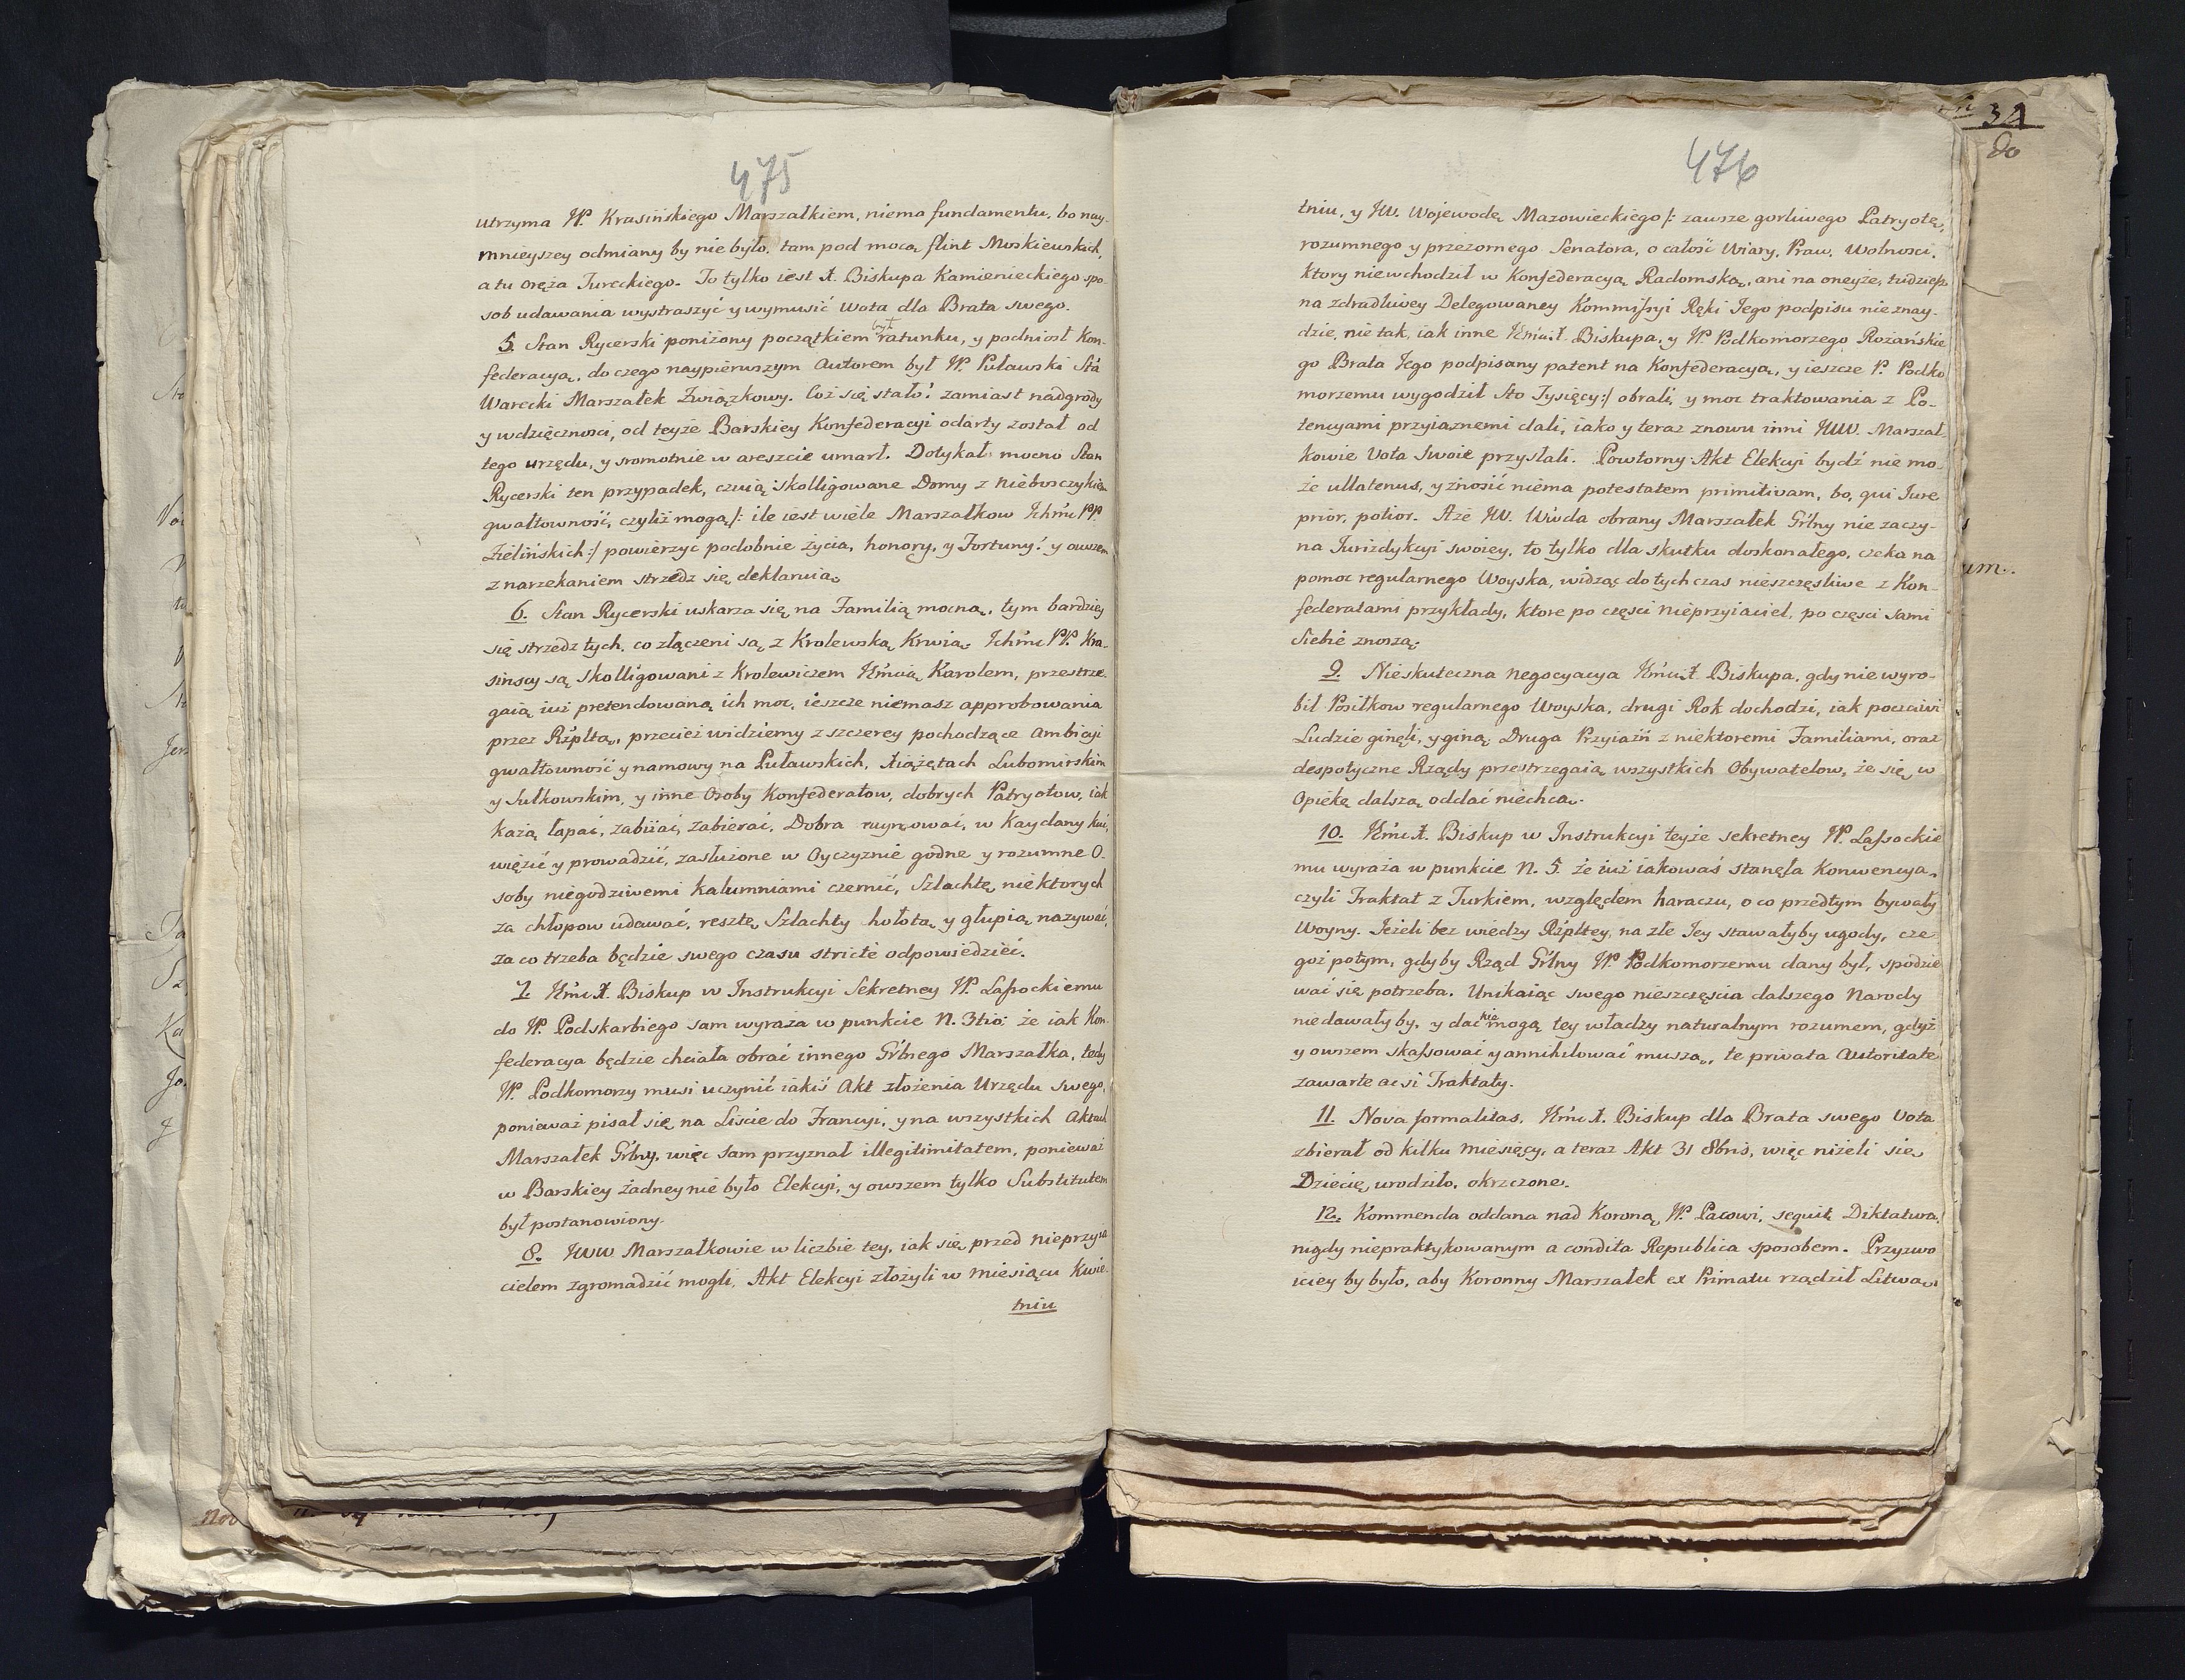 475
utrzyma W. Krasińskiego Marszałkiem, niema fundamentu, bo nay-
mnieyszey odmiany by nie było, tam pod mocą flint Moskiewskich,
a tu oręża Tureckiego. To tylko iest X. Biskupa Kamienieckiego spo-
sob udawania wystraszyć y wymusić wota dla Brata swego.
5. Stan Rycerski poniżony początkiem był ratunku, y podniosł Kon-
federacyą, do czego naypierwszym Autorem był W. Puławski Stá
Warecki Marszałek Związkowy. Coż się stało? zamiast nadgrody
y wdzięcznosci, od teyże Barskiey Konfederacyi odarty został od
tego urzędu, y sromotnie w areszcie umarł. Dotykał mocno Stan
Rycerski ten przypadek, czuią skolligowane Domy z Nieboszczykiem
gwałtowność, czyliż mogą /: ile iest wiele Marszałkow Ichmć PP.
Zielińskich :/ powierzyć podobnie życia, honory, y Fortuny? y owszem
z narzekaniem strzedz się deklaruią.
6. Stan Rycerski uskarza się na Familią mocną, tym bardziey
się strzedz tych, co złączeni są z Krolewską Krwią. Ichmć PP. Kra-
sinscy są skolligowani z Krolewiczem Jmcią Karolem, przestrze-
gaią iuż pretendowaną ich moc, ieszcze niemasz approbowania
przez Rzpltą, przecież widziemy z szczerey pochodzące ambicyi
gwałtowność y namowy na Puławskich, Xiążętach Lubomirskim
y Sułkowskim, y inne Osoby Konfederatow, dobrych Patryotow, iak
każą łapać, zabiiać, zabierać, Dobra ruynować, w Kaydany kuć,
więzić y prowadzić, zasłużone w Oyczyznie godne y rozumne O-
soby niegodziwemi kalumniami czernić, Szlachtę niektorych
za chłopow udawać, resztę Szlachty hołotą y głupią nazywać,
za co trzeba będzie swego czasu stricte odpowiedzieć.
7. Jmć X. Biskup w Instrukcyi Sekretney W. Lassockiemu
do W. Podskarbiego sam wyraża w punkcie N. 3tio: że iak Kon-
federacya będzie chciała obrać innego Grlnego Marszałka, tedy
W. Podkomorzy musi uczynić iakiś Akt złożenia Urzędu swego,
ponieważ pisał się na Liscie do Francyi, y na wszystkich Aktach
Marszałek Grlny, więc sam przyznał illegitimitatem, ponieważ
w Barskiey żadney nie było Elekcyi, y owszem tylko Substitutem
był postanowiony.
8. JWW Marszałkowie w liczbie tey, iak się przed nieprzyia
cielem zgromadzić mogli, Akt Elekcyi złożyli w miesiącu Kwie-
tniu
476
tniu, y JW. Wojewodę Mazowieckiego /: zawsze gorliwego Patryotę,
rozumnego y przezornego Senatora, o całość Wiary, Praw, Wolnosci,
ktory niewchodził w Konfederacyą Radomską, ani na oneyże, tudziesz
na zdradliwey Delegowaney Kommissyi Ręki Jego podpisu nieznay-
dzie, nie tak, iak inne Jmci X. Biskupa, y W. Podkomorzego Rożańskie
go Brata Jego podpisany patent na Konfederacyą, y ieszcze P. Podko
morzemu wygodził Sto Tysięcy :/ obrali, y moc traktowania z Po-
tencyami przyiaznemi dali, iako y teraz znowu inni JWW. Marszał-
kowie Vota Swoie przysłali. Powtorny Akt Elekcyi bydź nie mo-
że ullatenus, y znosić niema potestatem primitivam, bo, qui Jure
prior, potior. Aże JW. Wwoda obrany Marszałek Grlny nie zaczy-
na Jurizdykcyi swoiey, to tylko dla skutku doskonałego, czeka na
pomoc regularnego Woyska, widząc do tych czas nieszczęsliwe z Kon-
federatami przykłady, ktore po części nieprzyiaciel, po częsci sami
siebie znoszą.
9. Nieskuteczna negocyacya Jmci X. Biskupa, gdy nie wyro-
bił Posiłkow regularnego Woyska, drugi Rok dochodzi, iak poczciwi
Ludzie ginęli, y giną. Druga Przyiaźń z niektoremi Familiami, oraz
despotyczne Rządy przestrzegaią wszystkich Obywatelow, że się w
Opiekę dalszą oddać niechcą.
10. Jmć X. Biskup w Instrukcyi teyże sekretney W. Lassockie
mu wyraża w punkcie N. 5. że iuż iakowaś stanęła Konwencya,
czyli Traktat z Turkiem, względem haraczu, o co przedtym bywały
Woyny. Jeżeli bez wiedzy Rzpltey, na złe Jey stawałyby ugody, cze-
goż potym, gdyby Rząd Grlny W. Podkomorzemu dany był, spodzie
wać się potrzeba. Unikaiąc swego nieszczęscia dalszego Narody
niedawałyby, y dać nie mogą tey władzy naturalnym rozumem, gdyż
y owszem skassować y annihilować muszą, te privata Autoritate
zawarte acsi Traktaty.
11. Nova formalitas. Jmć X. Biskup dla Brata swego Vota
zbierał od kilku miesięcy, a teraz Akt 31 8bris, więc niżeli się
Dziecię urodziło, okrzczone.
12. Kommenda oddana nad Koroną W. Pacowi, sequit Diktatura,
nigdy niepraktykowanym a condita Republica sposobem. Przyzwo
iciey by było, aby Koronny Marszałek ex Primatu rządził Litwą,
34
80
um.